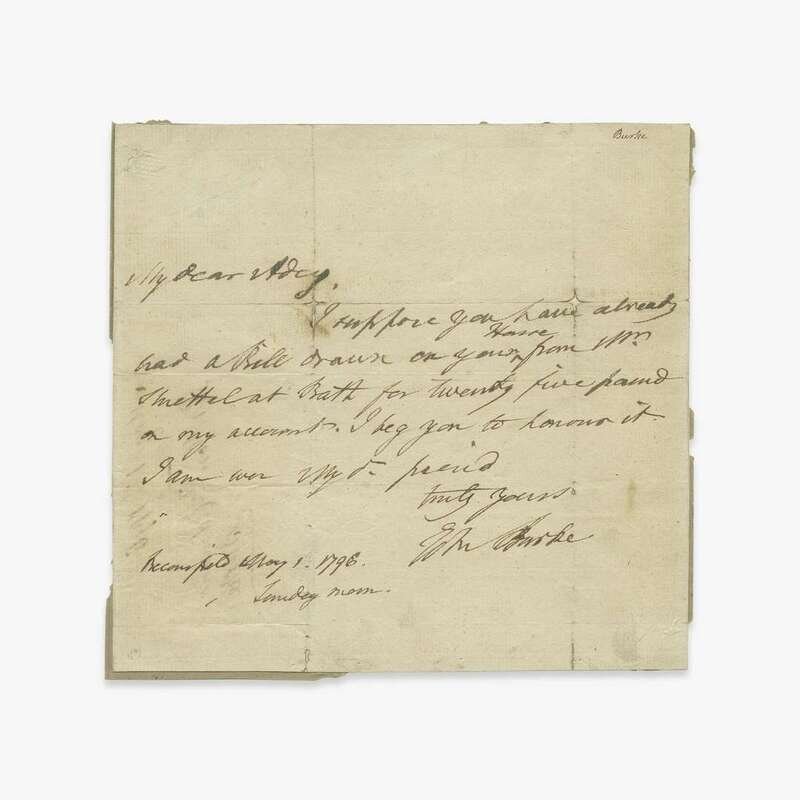 Burke
My dear Adey,
I suppose you have already
House
had a Bill drawn on your from Mr
at Bath for twenty five pound
on my account. I beg you to honour it.
I am ever My dr friend
truly yours
Edm Burke
Beconsfield May 1. 1796.
Sunday morn.